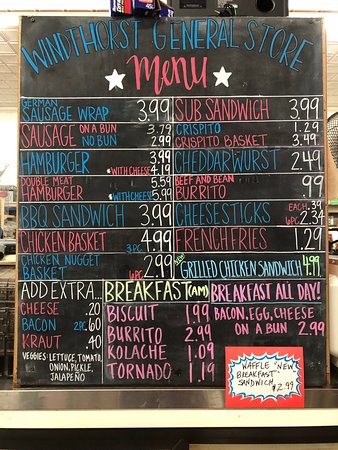 WINDTHORST GENERAL STORE
Menu
GERMAN
SAUSAGE WRAP 3.99
SAUSAGE ON A BUN 3.79
NO BUN 2.99
HAMBURGER 3.99
WITH CHEESE 4.19
DOUBLE MEAT 5.59
HAMBURGER WITH CHEESE 5.99
BBQ SANDWICH 3.99
CHICKEN BASKET 3PC. 4.99
CHICKEN NUGGET
BASKET 6PC. 2.99
SUB SANDWICH 3.99
CRISPITO 1.29
CRISPITO BASKET 3.49
CHEDDARWURST 2.49
BEEF AND BEAN
BURRITO .99
CHEESESTICKS EACH .39
6PC. 2.34
FRENCH FRIES 1.29
GRILLED CHICKEN SANDWICH 4.99
ADD EXTRA...
CHEESE .20
BACON 2PC. .60
KRAUT .40
VEGGIES: LETTUCE, TOMATO,
ONION, PICKLE,
JALAPEÑO
BREAKFAST (AM)
BISCUIT 1.99
BURRITO 2.99
KOLACHE 1.09
TORNADO 1.19
BREAKFAST ALL DAY!
BACON, EGG, CHEESE
ON A BUN 2.99
WAFFLE "NEW"
BREAKFAST
SANDWICH $2.99